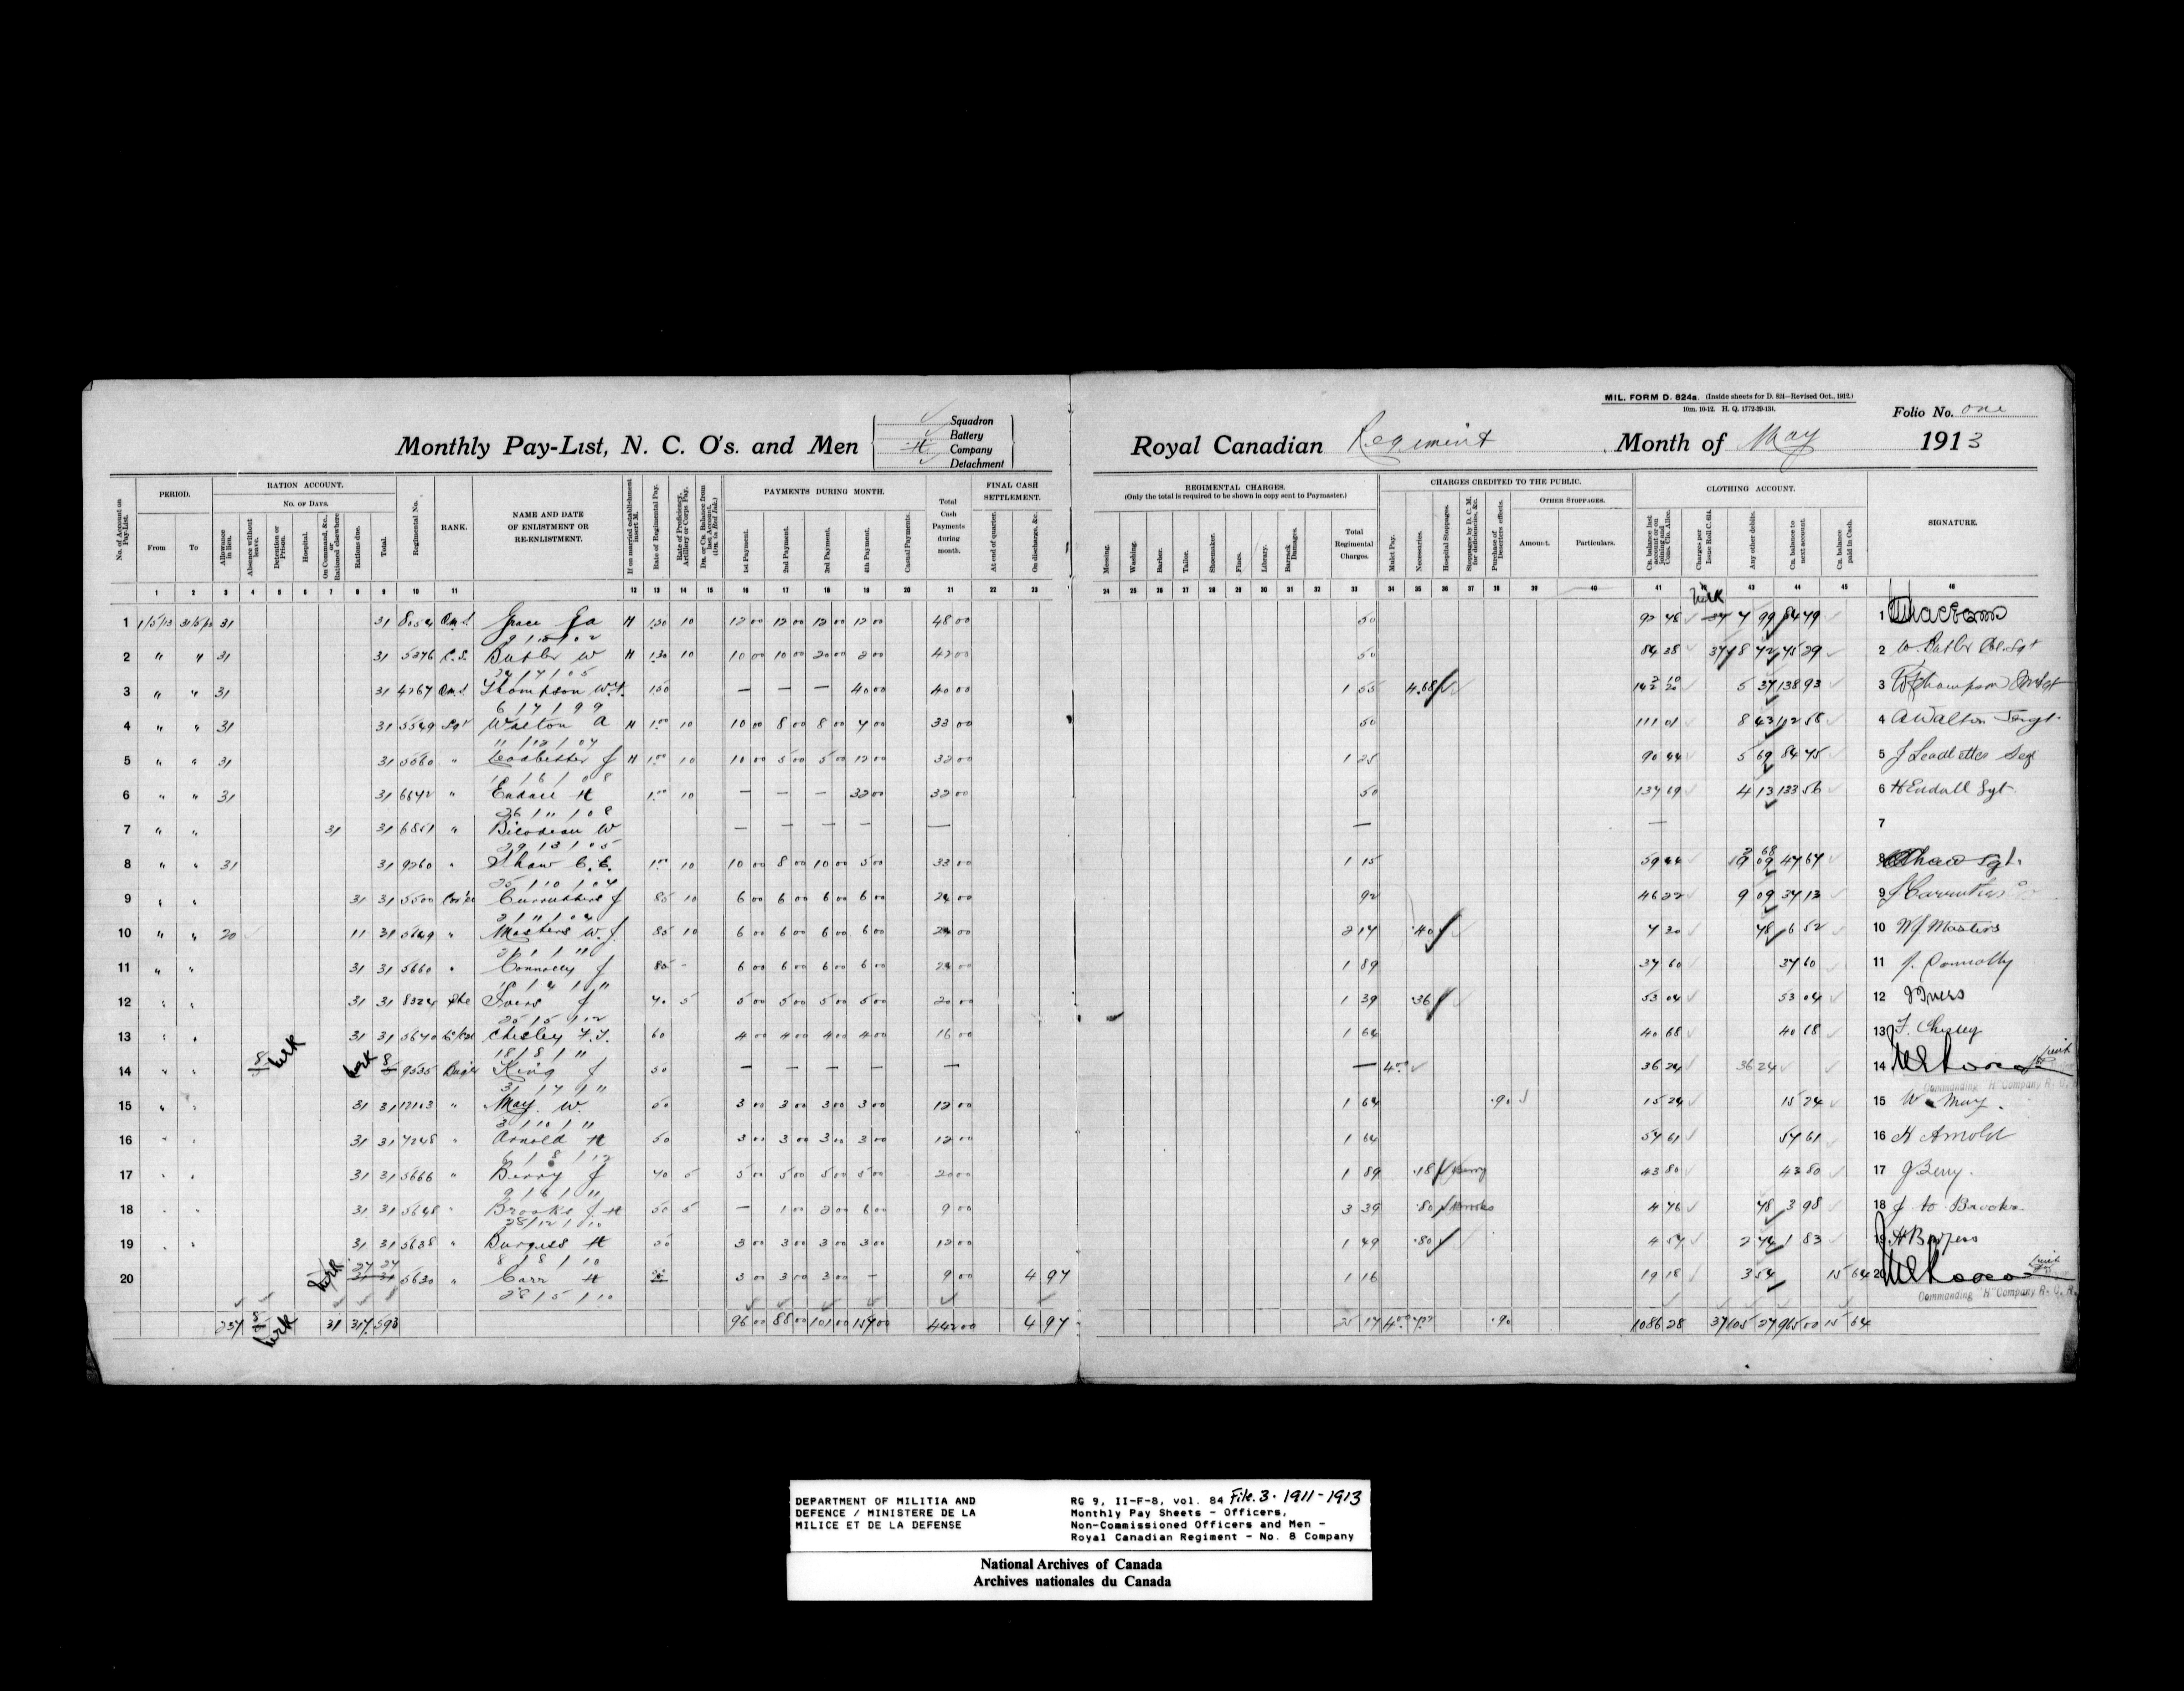 MIL. FORM D. 824a. (Inside sheets for D. 824—Revised Oct., 1912.)
10m. 10-12. H. Q. 1772-39-134.
Folio No. one
Monthly Pay-List, N. C. O's. and Men
Squadron
Battery
H Company
Detachment
Royal Canadian Regiment Month of May 1913
No. of Account on Pay-List.
PERIOD.
From
To
RATION ACCOUNT.
No. of Days.
Allowance in lieu.
Absence without leave.
Detention or Prison.
Hospital.
On Command, &c., or Rationed elsewhere
Rations due.
Total.
Regimental No.
RANK.
NAME AND DATE OF ENLISTMENT OR RE-ENLISTMENT.
If on married establishment insert M.
Rate of Regimental Pay.
Rate of Proficiency, Artillery or Corps Pay.
Dr. or Cr. Balance from last Account. (Drs. in Red Ink.)
PAYMENTS DURING MONTH.
1st Payment.
2nd Payment.
3rd Payment.
4th Payment.
Casual Payments.
Total Cash Payments during month.
FINAL CASH SETTLEMENT.
At end of quarter.
On discharge, &c.
REGIMENTAL CHARGES.
(Only the total is required to be shown in copy sent to Paymaster.)
Messing.
Washing.
Barber.
Tailor.
Shoemaker.
Fines.
Library.
Barrack Damages.
Total Regimental Charges.
CHARGES CREDITED TO THE PUBLIC.
Mulct Pay.
Necessaries.
Hospital Stoppages.
Stoppages by D. C. M. for deficiencies, &c.
Purchase of Deserters effects.
OTHER STOPPAGES.
Amount.
Particulars.
CLOTHING ACCOUNT.
Cr. balance last account or on joining and Cons. Clo. Allce.
Charges per Issue Roll C. 614.
Any other debits.
Cr. balance to next account.
Cr. balance paid in Cash.
SIGNATURE.
1 2 3 4 5 6 7 8 9 10 11 12 13 14 15 16 17 18 19 20 21 22 23
24 25 26 27 28 29 30 31 32 33 34 35 36 37 38 39 40 41 43 44 45 46
1 1/5/13 31/5/13 31 31 Grace 10 12 00 12 00 12 00 12 00 48 00 50 1
2 " " 31 31 5376 C.S. Butler W 10 10 00 10 00 20 00 2 00 42 00 50 84 38 45 29 2 W. Butler
3 " " 31 31 4267 Thompson 150 — — — 40 00 40 00 1 55 4.68 5 37 138 93 3 Thompson
6/7/99
4 " " 31 31 5549 Sgt Walton A 1.00 10 10 00 8 00 8 00 7 00 33 00 50 111 01 8 43 102 58 4 A Walton Sergt.
11/12/04
5 " " 31 31 5560 " Leadbetter J 1.00 10 10 00 5 00 5 00 12 00 32 00 1 25 90 44 5 69 84 75 5 J Leadbetter
6 " " 31 31 6642 " Endall H 1.00 10 — — — 32 00 32 00 50 137 69 4 13 133 56 6 H Endall Sgt
7 " " 31 31 6851 " Bilodeau W — — — — — — — 7
29/3/05
8 " " 31 31 9260 " Shaw C.E. 1.00 10 10 00 8 00 10 00 5 00 33 00 1 15 47 67 8 Shaw Sgt.
25/10/04
9 " " 31 31 5500 Carruthers J 85 10 6 00 6 00 6 00 6 00 24 00 92 46 22 9 09 37 13 9 J Carruthers
10 " " 20 11 31 5649 " Masters W.J. 85 10 6 00 6 00 6 00 6 00 24 00 2 14 .40 7 30 48 6 52 10 W J Masters
11 " " 31 31 5660 " Connolly J 85 - 6 00 6 00 6 00 6 00 24 00 1 89 37 60 37 60 11 J. Connolly
12 " " 31 31 8324 Pte Ivers J 70 5 5 00 5 00 5 00 5 00 20 00 1 39 .36 53 04 53 04 12 J Ivers
25/5/12
13 " " 31 31 5670 Chesley F.J. 60 4 00 4 00 4 00 4 00 16 00 1 64 40 68 40 68 13 F. Chesley
18/8/11
14 " " 9535 King J 50 — — — — — — 4.00 36 24 36 24 14
31/7/11
Commanding "H" Company R. C. R.
15 " " 31 31 12103 " May W. 50 3 00 3 00 3 00 3 00 12 00 1 64 .90 15 24 15 24 15 W. May.
3/10/11
16 " " 31 31 7248 " Arnold H 50 3 00 3 00 3 00 3 00 12 00 1 64 57 61 57 61 16 H Arnold
6/8/12
17 " " 31 31 5666 " Berry J 70 5 5 00 5 00 5 00 5 00 20 00 1 89 .18 Berry 43 80 43 80 17 J Berry.
9/6/11
18 " " 31 31 5648 " Brooks J. H 50 5 — 1 00 2 00 6 00 9 00 3 39 .80 Brooks 4 76 48 3 98 18
28/12/10
19 " " 31 31 5638 " Burgess H 50 3 00 3 00 3 00 3 00 12 00 1 49 .80 4 57 2 74 1 83 19 H Burgess
8/8/10
20 27 27 5630 " Carr H 3 00 3 00 3 00 - 9 00 4 97 1 16 19 18 3 54 15 64 20
28/5/10
Commanding "H" Company R. C. R.
257 31 317 593 96 00 88 00 101 00 157 00 442 00 4 97 25 17 4.00 .90 1086 28 37 105 27 965 00 15 64
DEPARTMENT OF MILITIA AND
DEFENCE / MINISTERE DE LA
MILICE ET DE LA DEFENSE
RG 9, II-F-8, vol. 84 File. 3. 1911-1913
Monthly Pay Sheets - Officers,
Non-Commissioned Officers and Men -
Royal Canadian Regiment - No. 8 Company
National Archives of Canada
Archives nationales du Canada